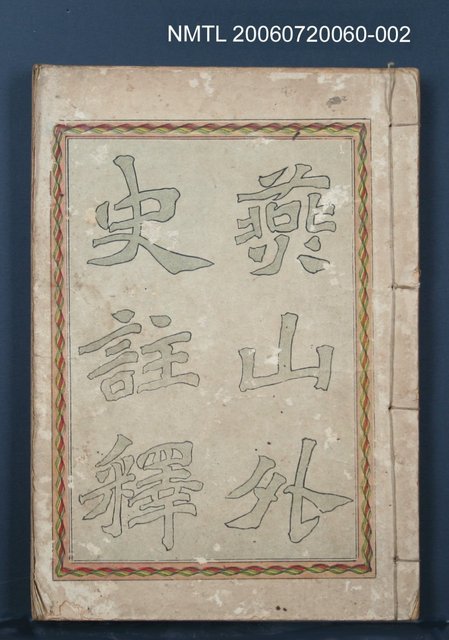 NMTL 20060720060-002
燕山外
史註釋